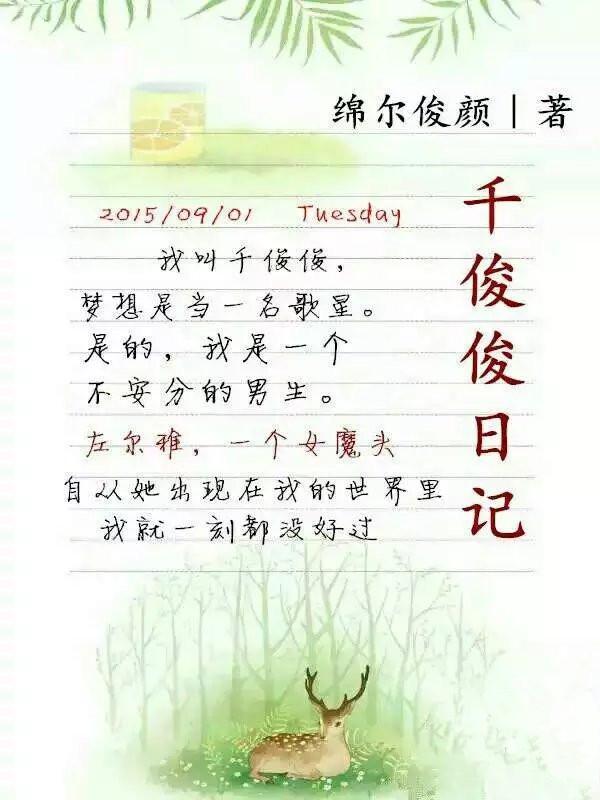 绵尔俊颜｜著
千俊俊日记
2015/09/01 Tuesday
我叫千俊俊，
梦想是当一名歌星。
是的，我是一个
不安分的男生。
左尔雅，一个女魔头
自从她出现在我的世界里
我就一刻都没好过